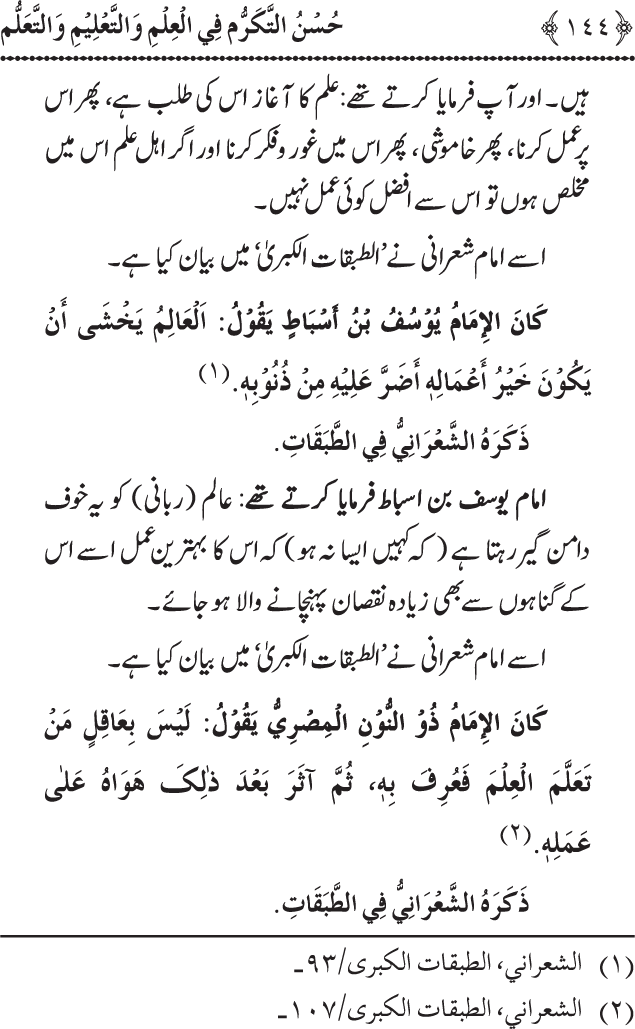 ﴿١٤٤﴾ حُسْنُ التَّكَرُّم فِي الْعِلْمِ وَالتَّعْلِيْمِ وَالتَّعَلُّم
ہیں۔ اور آپ فرمایا کرتے تھے: علم کا آغاز اس کی طلب ہے، پھر اس
پر عمل کرنا، پھر خاموشی، پھر اس میں غور و فکر کرنا اور اگر اہل علم اس میں
مخلص ہوں تو اس سے افضل کوئی عمل نہیں۔
اسے امام شعرانی نے ’الطبقات الکبریٰ‘ میں بیان کیا ہے۔
كَانَ الإِمَامُ يُوْسُفُ بْنُ أَسْبَاطٍ يَقُوْلُ: اَلْعَالِمُ يَخْشَى أَنْ
يَكُوْنَ خَيْرُ أَعْمَالِهٖ أَضَرَّ عَلَيْهِ مِنْ ذُنُوْبِهٖ.(١)
ذَكَرَهُ الشَّعْرَانِيُّ فِي الطَّبَقَاتِ.
امام یوسف بن اسباط فرمایا کرتے تھے: عالم (ربانی) کو یہ خوف
دامن گیر رہتا ہے (کہ کہیں ایسا نہ ہو) کہ اس کا بہترین عمل اسے اس
کے گناہوں سے بھی زیادہ نقصان پہنچانے والا ہو جائے۔
اسے امام شعرانی نے ’الطبقات الکبریٰ‘ میں بیان کیا ہے۔
كَانَ الإِمَامُ ذُو النُّوْنِ الْمِصْرِيُّ يَقُوْلُ: لَيْسَ بِعَاقِلٍ مَنْ
تَعَلَّمَ الْعِلْمَ فَعُرِفَ بِهٖ، ثُمَّ آثَرَ بَعْدَ ذٰلِكَ هَوَاهُ عَلٰى
عَمَلِهٖ.(٢)
ذَكَرَهُ الشَّعْرَانِيُّ فِي الطَّبَقَاتِ.
(١) الشعراني، الطبقات الكبرى/٩٣ـ
(٢) الشعراني، الطبقات الكبرى/١٠٧ـ